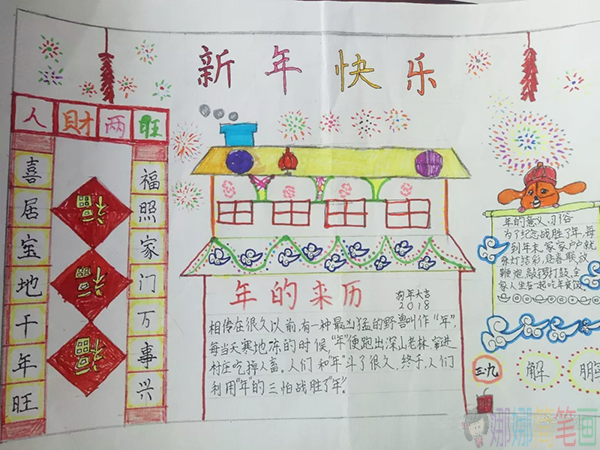 新年快乐
人財两旺
喜居宝地千年旺
福照家门万事兴
福
福
福
年的来历
狗年大吉
2018
相传在很久以前,有一种最凶猛的野兽叫作"年".
每当天寒地冻的时候,"年"便跑出深山老林,窜进
村庄吃掉人畜。人们和"年"斗了很久,终于,人们
利用"年的三怕战胜了年".
年的意义、习俗
为了纪念战胜了年,每
到年末,家家户户就
张灯结彩,春联,放
鞭炮,敲锣打鼓,全
家人坐一起吃年夜饭
三九
解
娜娜简笔画